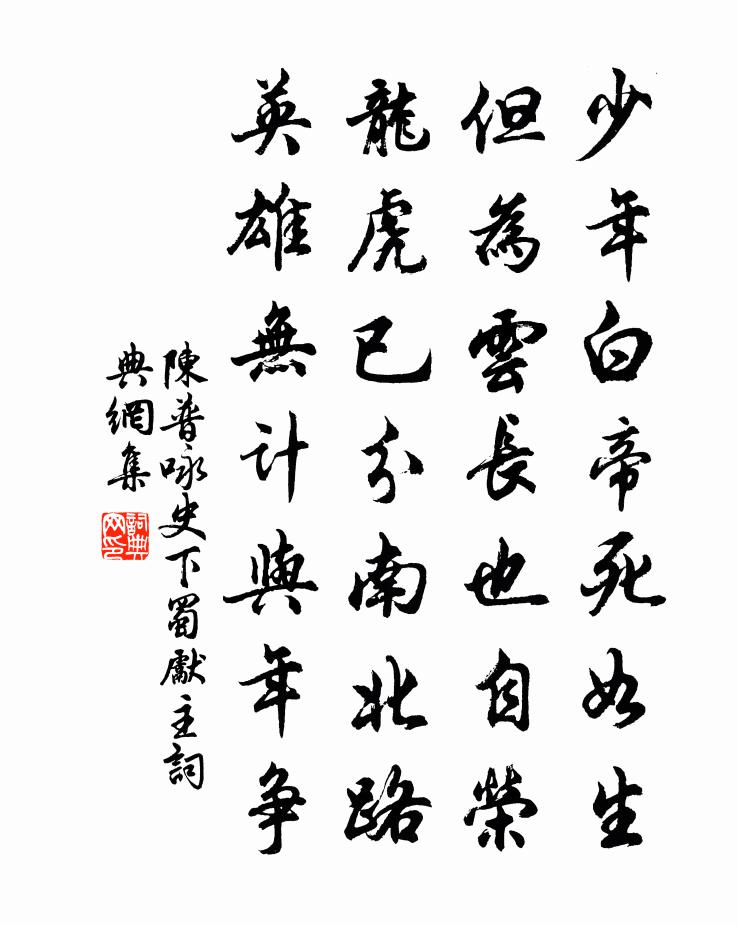 少年白帝死如生
但為雲長也自榮
龍虎已分南北路
英雄無計與年爭
陳普咏史下蜀獻主詞
典網集
詞典
网印